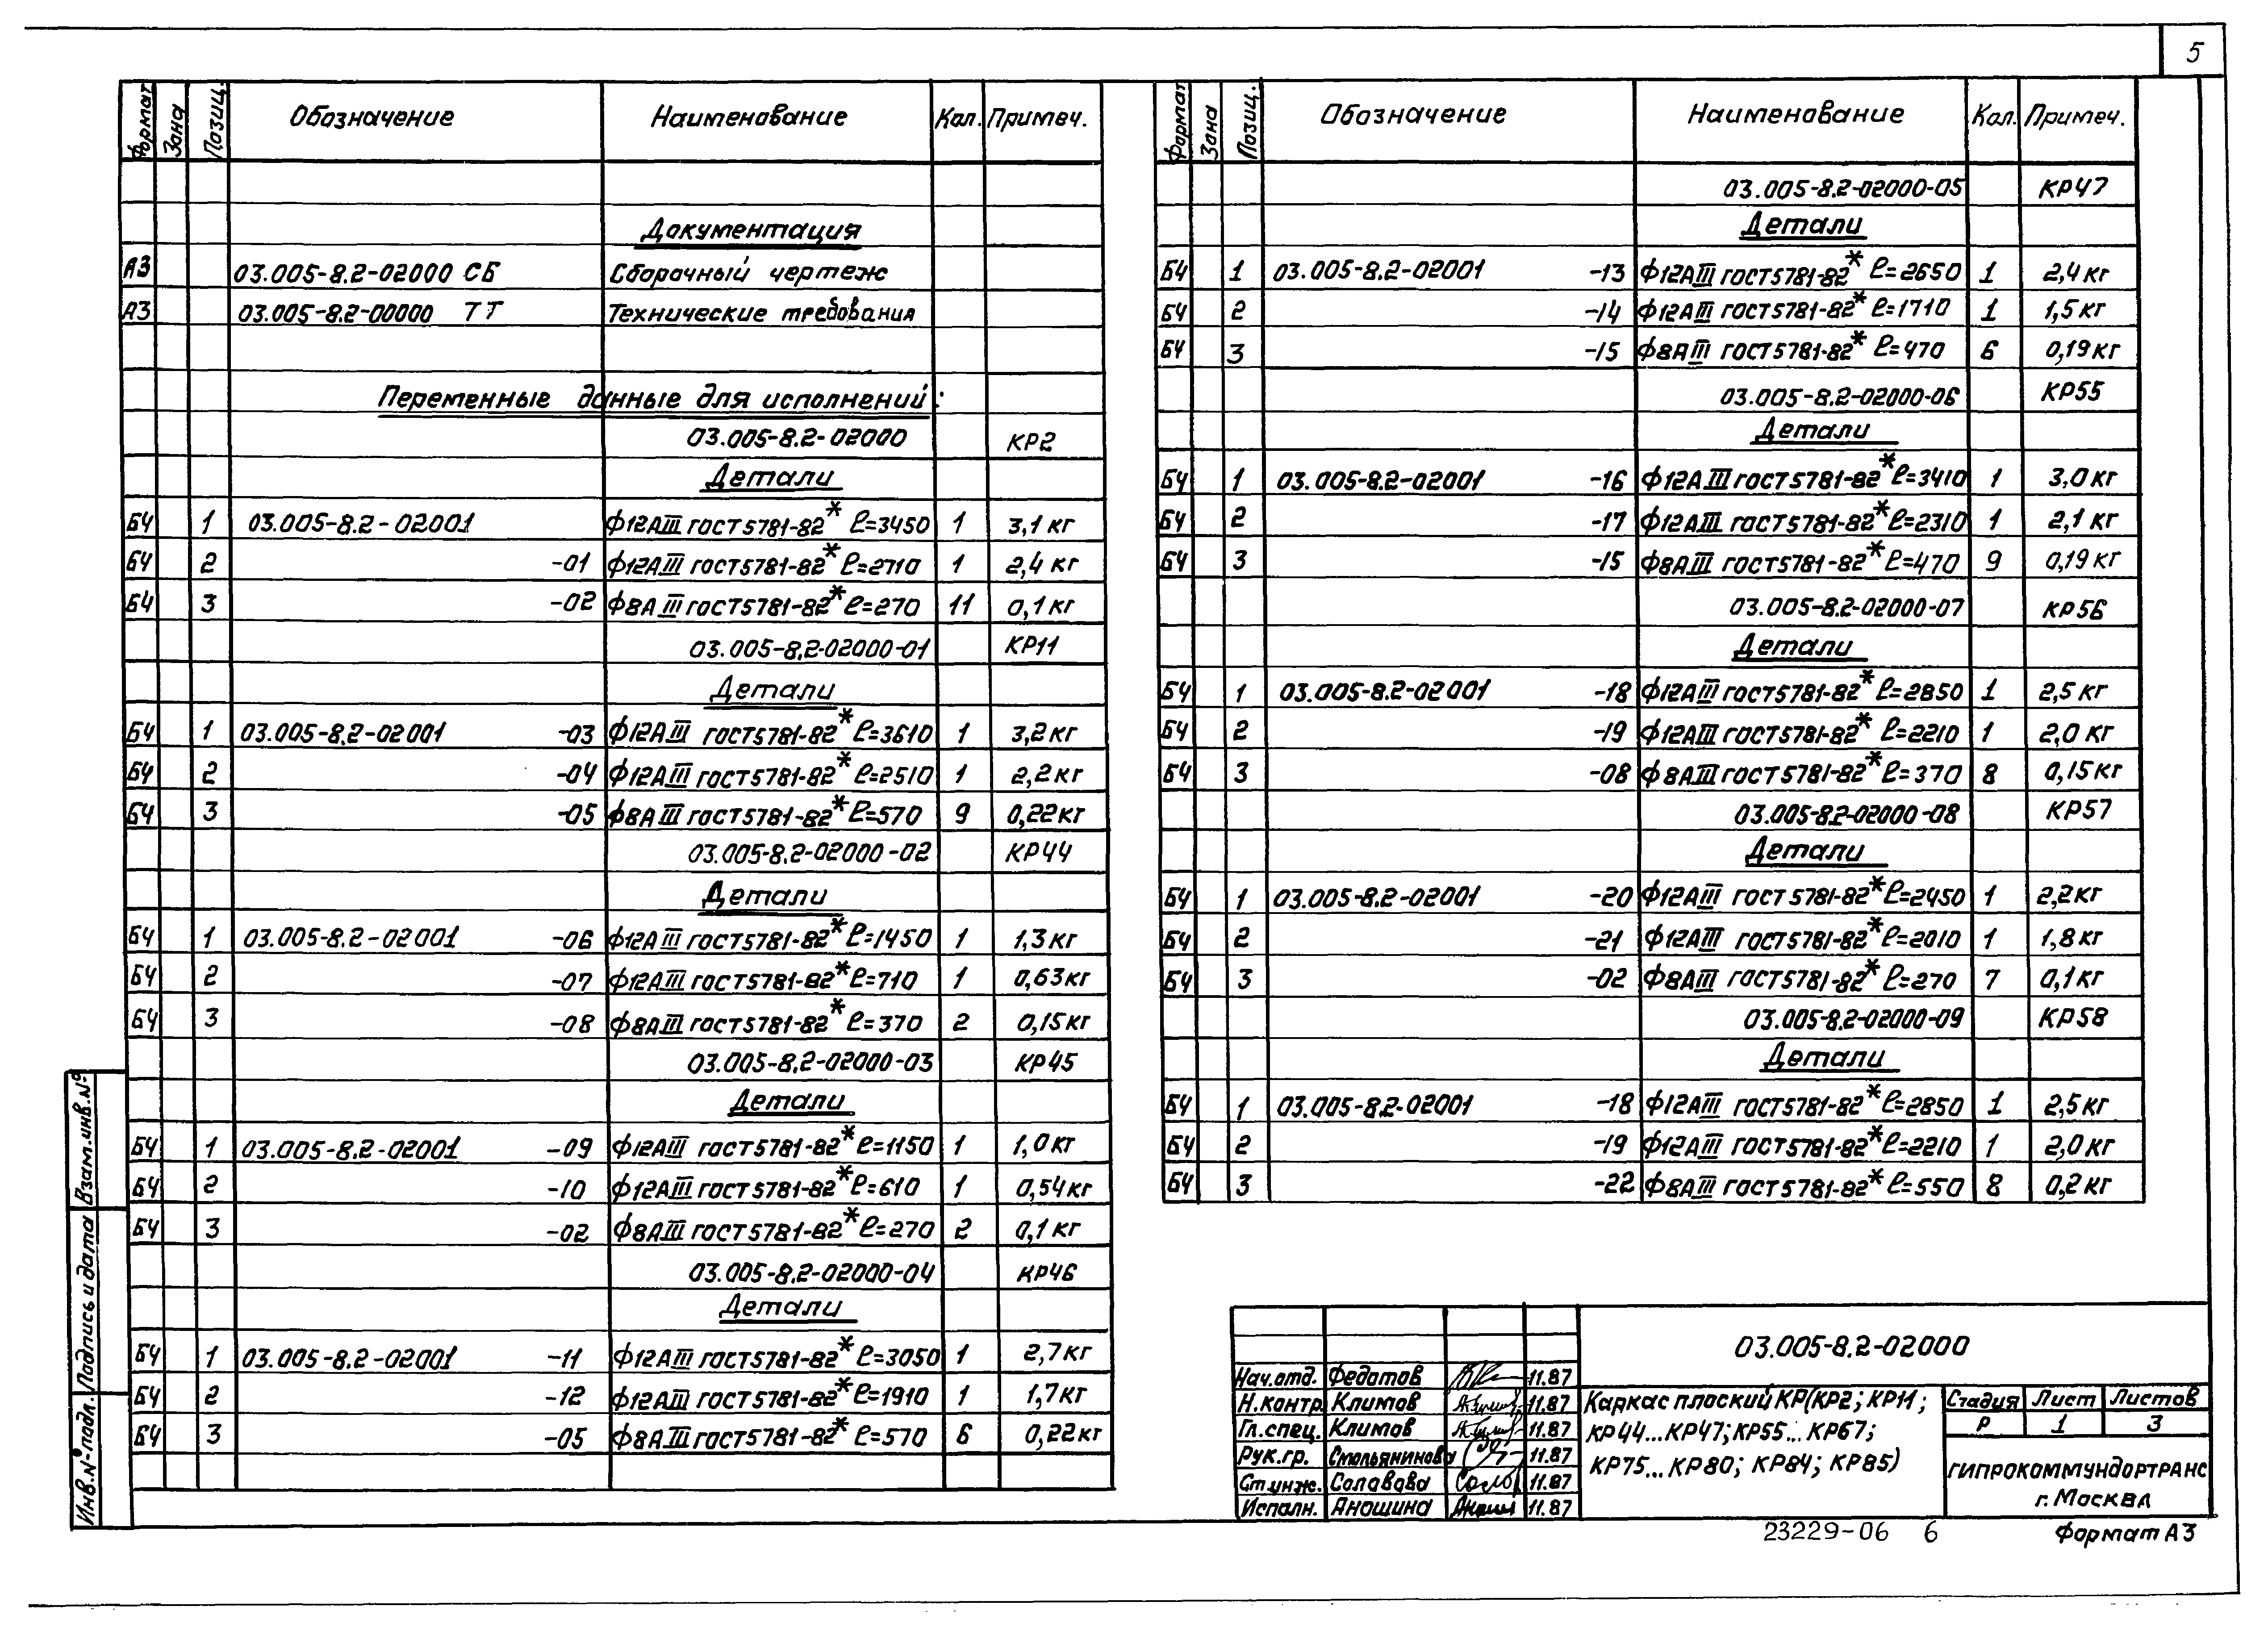 5
Формат Зона Позиц. Обозначение Наименование Кол. Примеч.
Документация
А3 03.005-8.2-02000 СБ Сборочный чертеж
А3 03.005-8.2-00000 ТТ Технические требования
Переменные данные для исполнений:
03.005-8.2-02000 КР2
Детали
БЧ 1 03.005-8.2-02001 Ф12АIII ГОСТ5781-82* ℓ=3450 1 3,1 кг
БЧ 2 -01 Ф12АIII ГОСТ5781-82* ℓ=2710 1 2,4 кг
БЧ 3 -02 Ф8АIII ГОСТ5781-82* ℓ=270 11 0,1 кг
03.005-8.2-02000-01 КР11
Детали
БЧ 1 03.005-8.2-02001 -03 Ф12АIII ГОСТ5781-82* ℓ=3610 1 3,2 кг
БЧ 2 -04 Ф12АIII ГОСТ5781-82* ℓ=2510 1 2,2 кг
БЧ 3 -05 Ф8АIII ГОСТ5781-82* ℓ=570 9 0,22 кг
03.005-8.2-02000-02 КР44
Детали
БЧ 1 03.005-8.2-02001 -06 Ф12АIII ГОСТ5781-82* ℓ=1450 1 1,3 кг
БЧ 2 -07 Ф12АIII ГОСТ5781-82* ℓ=710 1 0,63 кг
БЧ 3 -08 Ф8АIII ГОСТ5781-82* ℓ=370 2 0,15 кг
03.005-8.2-02000-03 КР45
Детали
БЧ 1 03.005-8.2-02001 -09 Ф12АIII ГОСТ5781-82* ℓ=1150 1 1,0 кг
БЧ 2 -10 Ф12АIII ГОСТ5781-82* ℓ=610 1 0,54 кг
БЧ 3 -02 Ф8АIII ГОСТ5781-82* ℓ=270 2 0,1 кг
03.005-8.2-02000-04 КР46
Детали
БЧ 1 03.005-8.2-02001 -11 Ф12АIII ГОСТ5781-82* ℓ=3050 1 2,7 кг
БЧ 2 -12 Ф12АIII ГОСТ5781-82* ℓ=1910 1 1,7 кг
БЧ 3 -05 Ф8АIII ГОСТ5781-82* ℓ=570 6 0,22 кг
Формат Зона Позиц. Обозначение Наименование Кол. Примеч.
03.005-8.2-02000-05 КР47
Детали
БЧ 1 03.005-8.2-02001 -13 Ф12АIII ГОСТ5781-82* ℓ=2650 1 2,4 кг
БЧ 2 -14 Ф12АIII ГОСТ5781-82* ℓ=1710 1 1,5 кг
БЧ 3 -15 Ф8АIII ГОСТ5781-82* ℓ=470 6 0,19 кг
03.005-8.2-02000-06 КР55
Детали
БЧ 1 03.005-8.2-02001 -16 Ф12АIII ГОСТ5781-82* ℓ=3410 1 3,0 кг
БЧ 2 -17 Ф12АIII ГОСТ5781-82* ℓ=2310 1 2,1 кг
БЧ 3 -15 Ф8АIII ГОСТ5781-82* ℓ=470 9 0,19 кг
03.005-8.2-02000-07 КР56
Детали
БЧ 1 03.005-8.2-02001 -18 Ф12АIII ГОСТ5781-82* ℓ=2850 1 2,5 кг
БЧ 2 -19 Ф12АIII ГОСТ5781-82* ℓ=2210 1 2,0 кг
БЧ 3 -08 Ф8АIII ГОСТ5781-82* ℓ=370 8 0,15 кг
03.005-8.2-02000-08 КР57
Детали
БЧ 1 03.005-8.2-02001 -20 Ф12АIII ГОСТ5781-82* ℓ=2450 1 2,2 кг
БЧ 2 -21 Ф12АIII ГОСТ5781-82* ℓ=2010 1 1,8 кг
БЧ 3 -02 Ф8АIII ГОСТ5781-82* ℓ=270 7 0,1 кг
03.005-8.2-02000-09 КР58
Детали
БЧ 1 03.005-8.2-02001 -18 Ф12АIII ГОСТ5781-82* ℓ=2850 1 2,5 кг
БЧ 2 -19 Ф12АIII ГОСТ5781-82* ℓ=2210 1 2,0 кг
БЧ 3 -22 Ф8АIII ГОСТ5781-82* ℓ=550 8 0,2 кг
Взам.инв.№
Подпись и дата
Инв.№ подл.
03.005-8.2-02000
Нач.отд. Федотов 11.87
Н.контр. Климов 11.87
Гл.спец. Климов 11.87
Рук.гр. Смольянинова 11.87
Ст.инж. Соловова 11.87
Исполн. Аношина 11.87
Каркас плоский КР(КР2; КР11;
КР44...КР47; КР55...КР67;
КР75...КР80; КР84; КР85)
Стадия Лист Листов
Р 1 3
ГИПРОКОММУНДОРТРАНС
г. Москва
23229-06 6
Формат А3